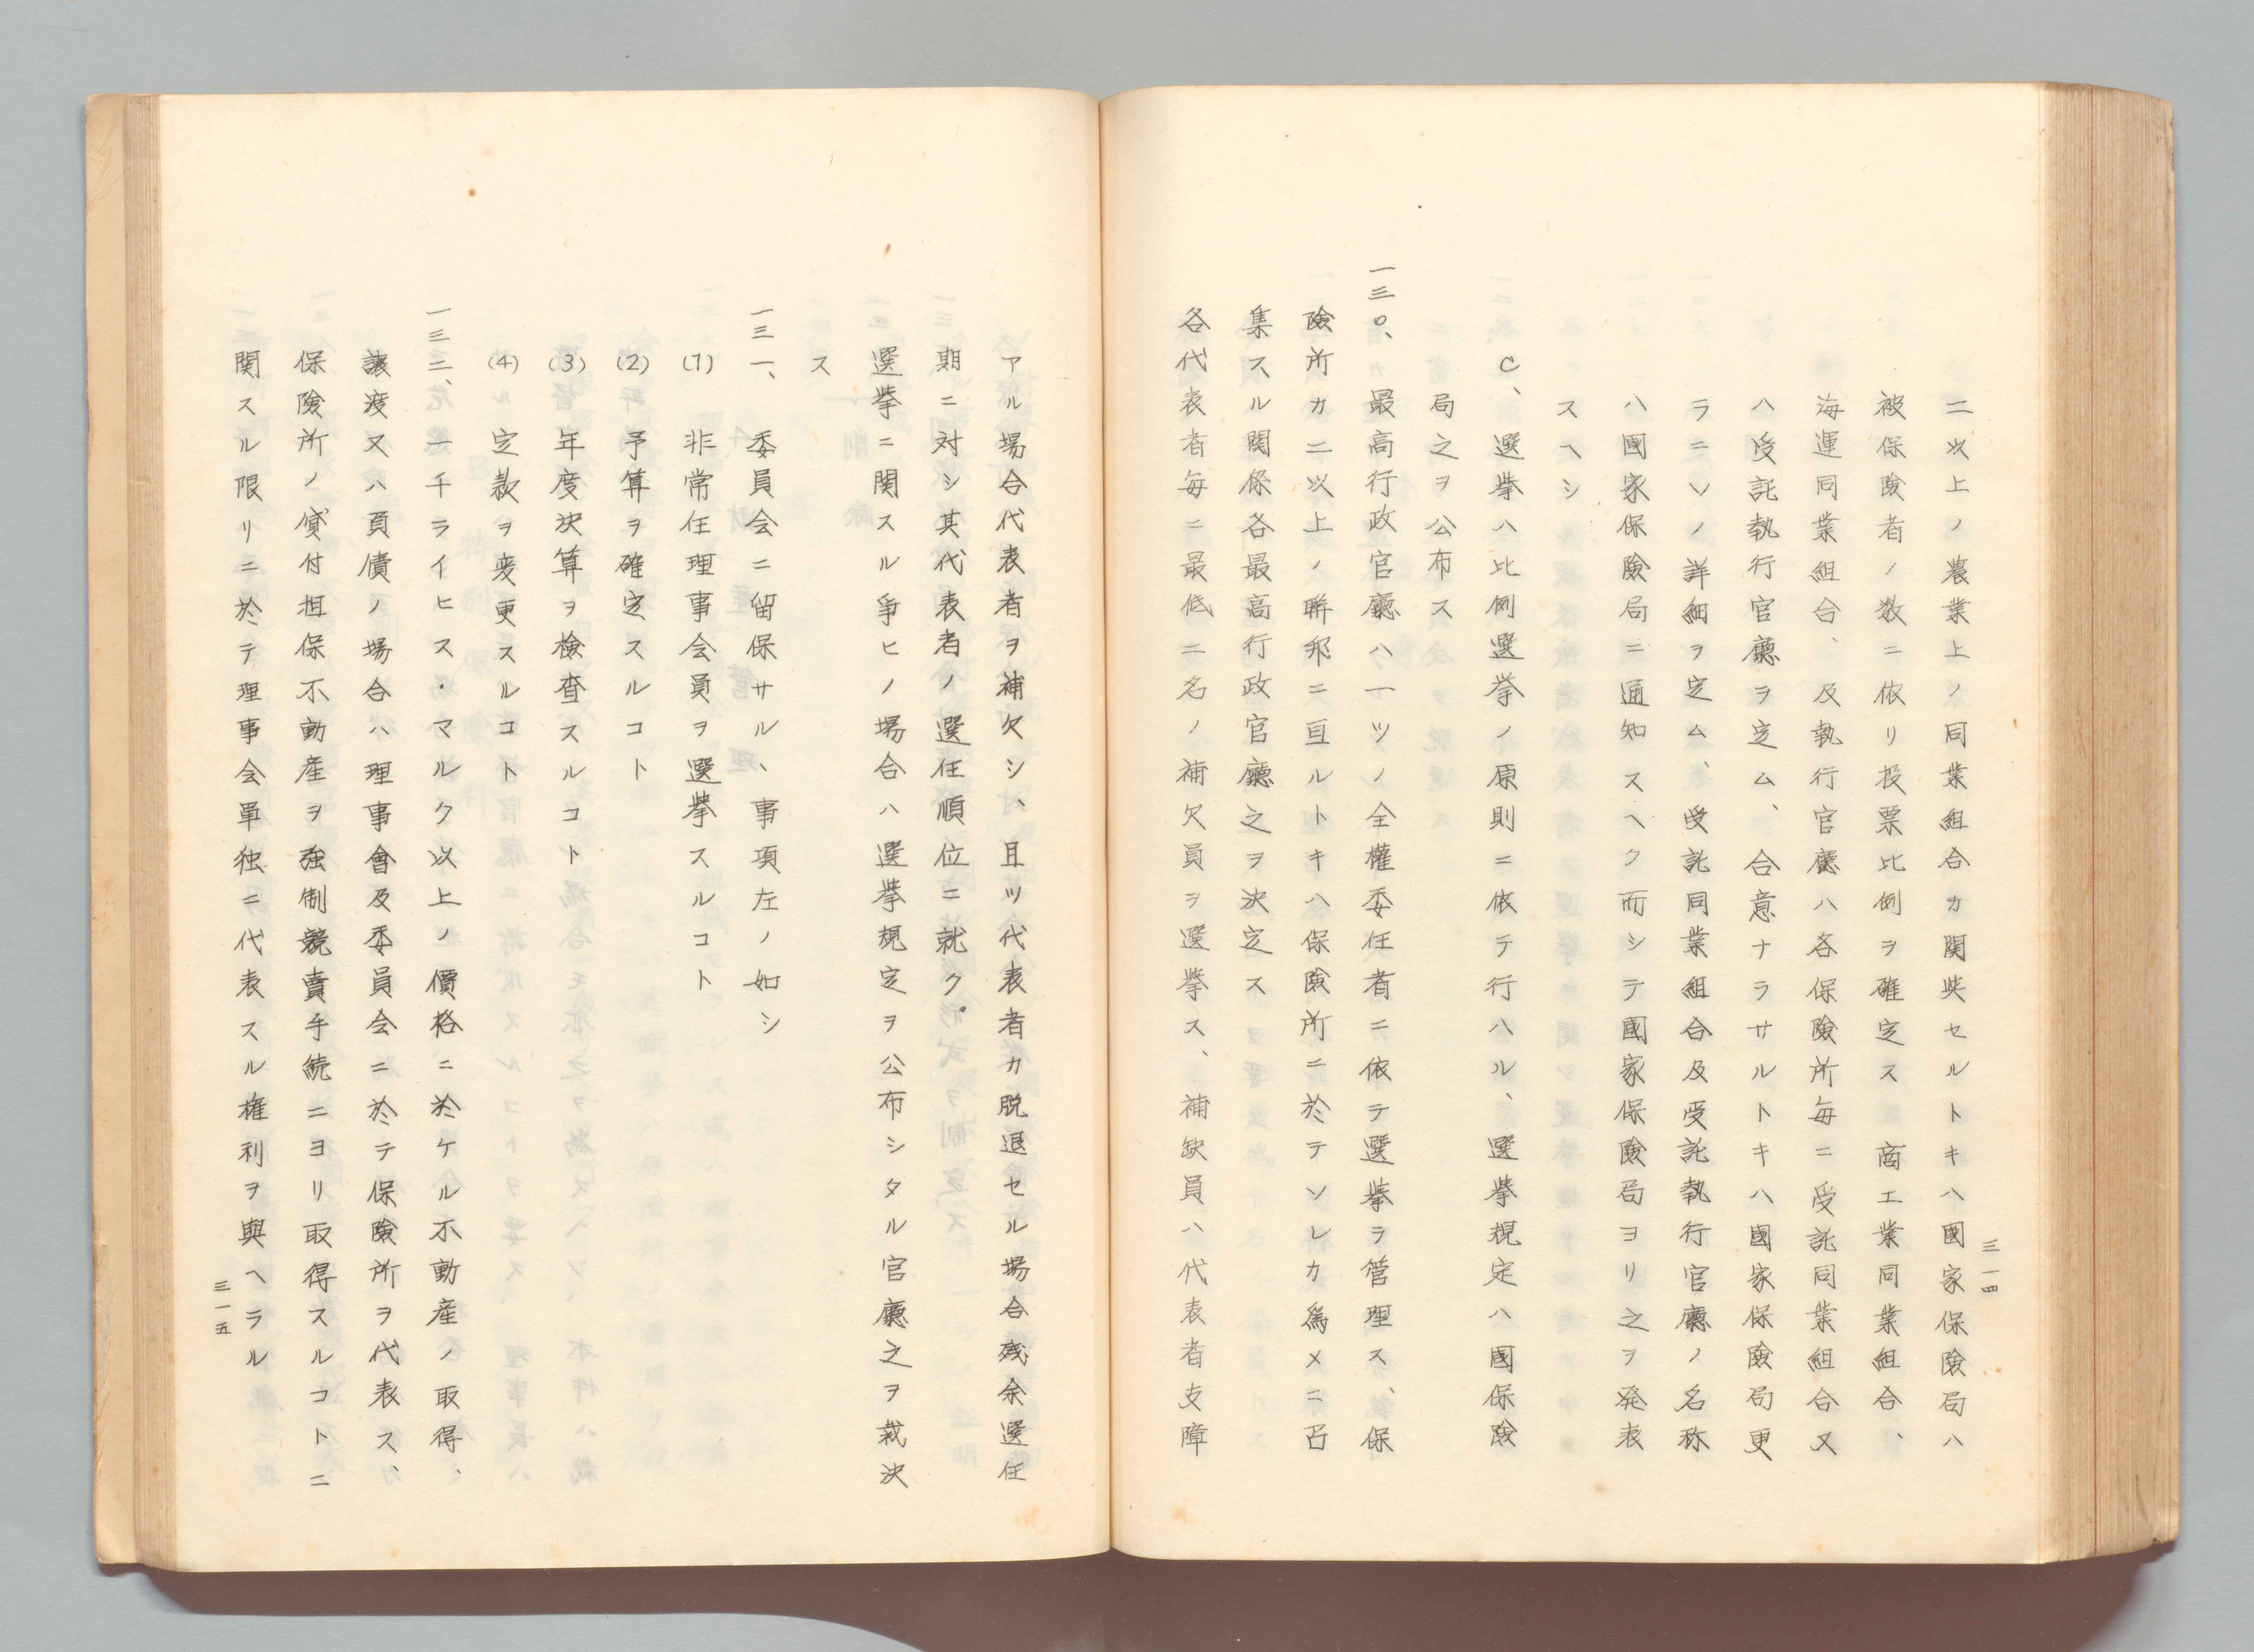 二以上ノ農業上ノ同業組合カ関與セルトキハ國家保險局ハ
被保險者ノ数ニ依リ投票比例ヲ確定ス　商工業同業組合、
海運同業組合、及執行官廳ハ各保險所毎ニ受託同業組合又
ハ受託執行官廳ヲ定ム、合意ナラサルトキハ國家保險局更
ラニソノ詳細ヲ定ム、受託同業組合及受託執行官廳ノ名称
ハ國家保險局ニ通知スヘク而シテ國家保險局ヨリ之ヲ発表
スヘシ
C、選挙ハ比例選挙ノ原則ニ依テ行ハル、選挙規定ハ國保險
局之ヲ公布ス
一三〇、最高行政官廳ハ一ツノ全權委任者ニ依テ選挙ヲ管理ス、保
險所カ二以上ノ聯邦ニ亘ルトキハ保險所ニ於テソレカ爲メニ召
集スル関係各最高行政官廳之ヲ決定ス
各代表者毎ニ最低二名ノ補欠員ヲ選挙ス、補缺員ハ代表者支障
三一四
アル場合代表者ヲ補欠シ、且ツ代表者カ脱退セル場合残余選任
期ニ対シ其代表者ノ選任順位ニ就ク。
選挙ニ関スル爭ヒノ場合ハ選挙規定ヲ公布シタル官廳之ヲ裁決
ス
一三一、委員会ニ留保サル、事項左ノ如シ
(1)　非常任理事会員ヲ選挙スルコト
(2)　予算ヲ確定スルコト
(3)　年度決算ヲ檢査スルコト
(4)　定款ヲ変更スルコト
一三二、一千ライヒス・マルク以上ノ價格ニ於ケル不動産ノ取得、
譲渡又ハ負債ノ場合ハ理事會及委員会ニ於テ保險所ヲ代表ス、
保險所ノ貸付担保不動産ヲ強制競賣手続ニヨリ取得スルコトニ
関スル限リニ於テ理事会單独ニ代表スル権利ヲ與ヘラル
三一五